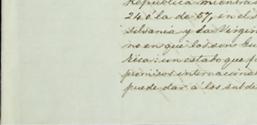 República mientras
24 ó la de 57, en el
silvania y la Virgin
no en que los con
rica: un estado que
promisos internaciona
puede dar á los sub